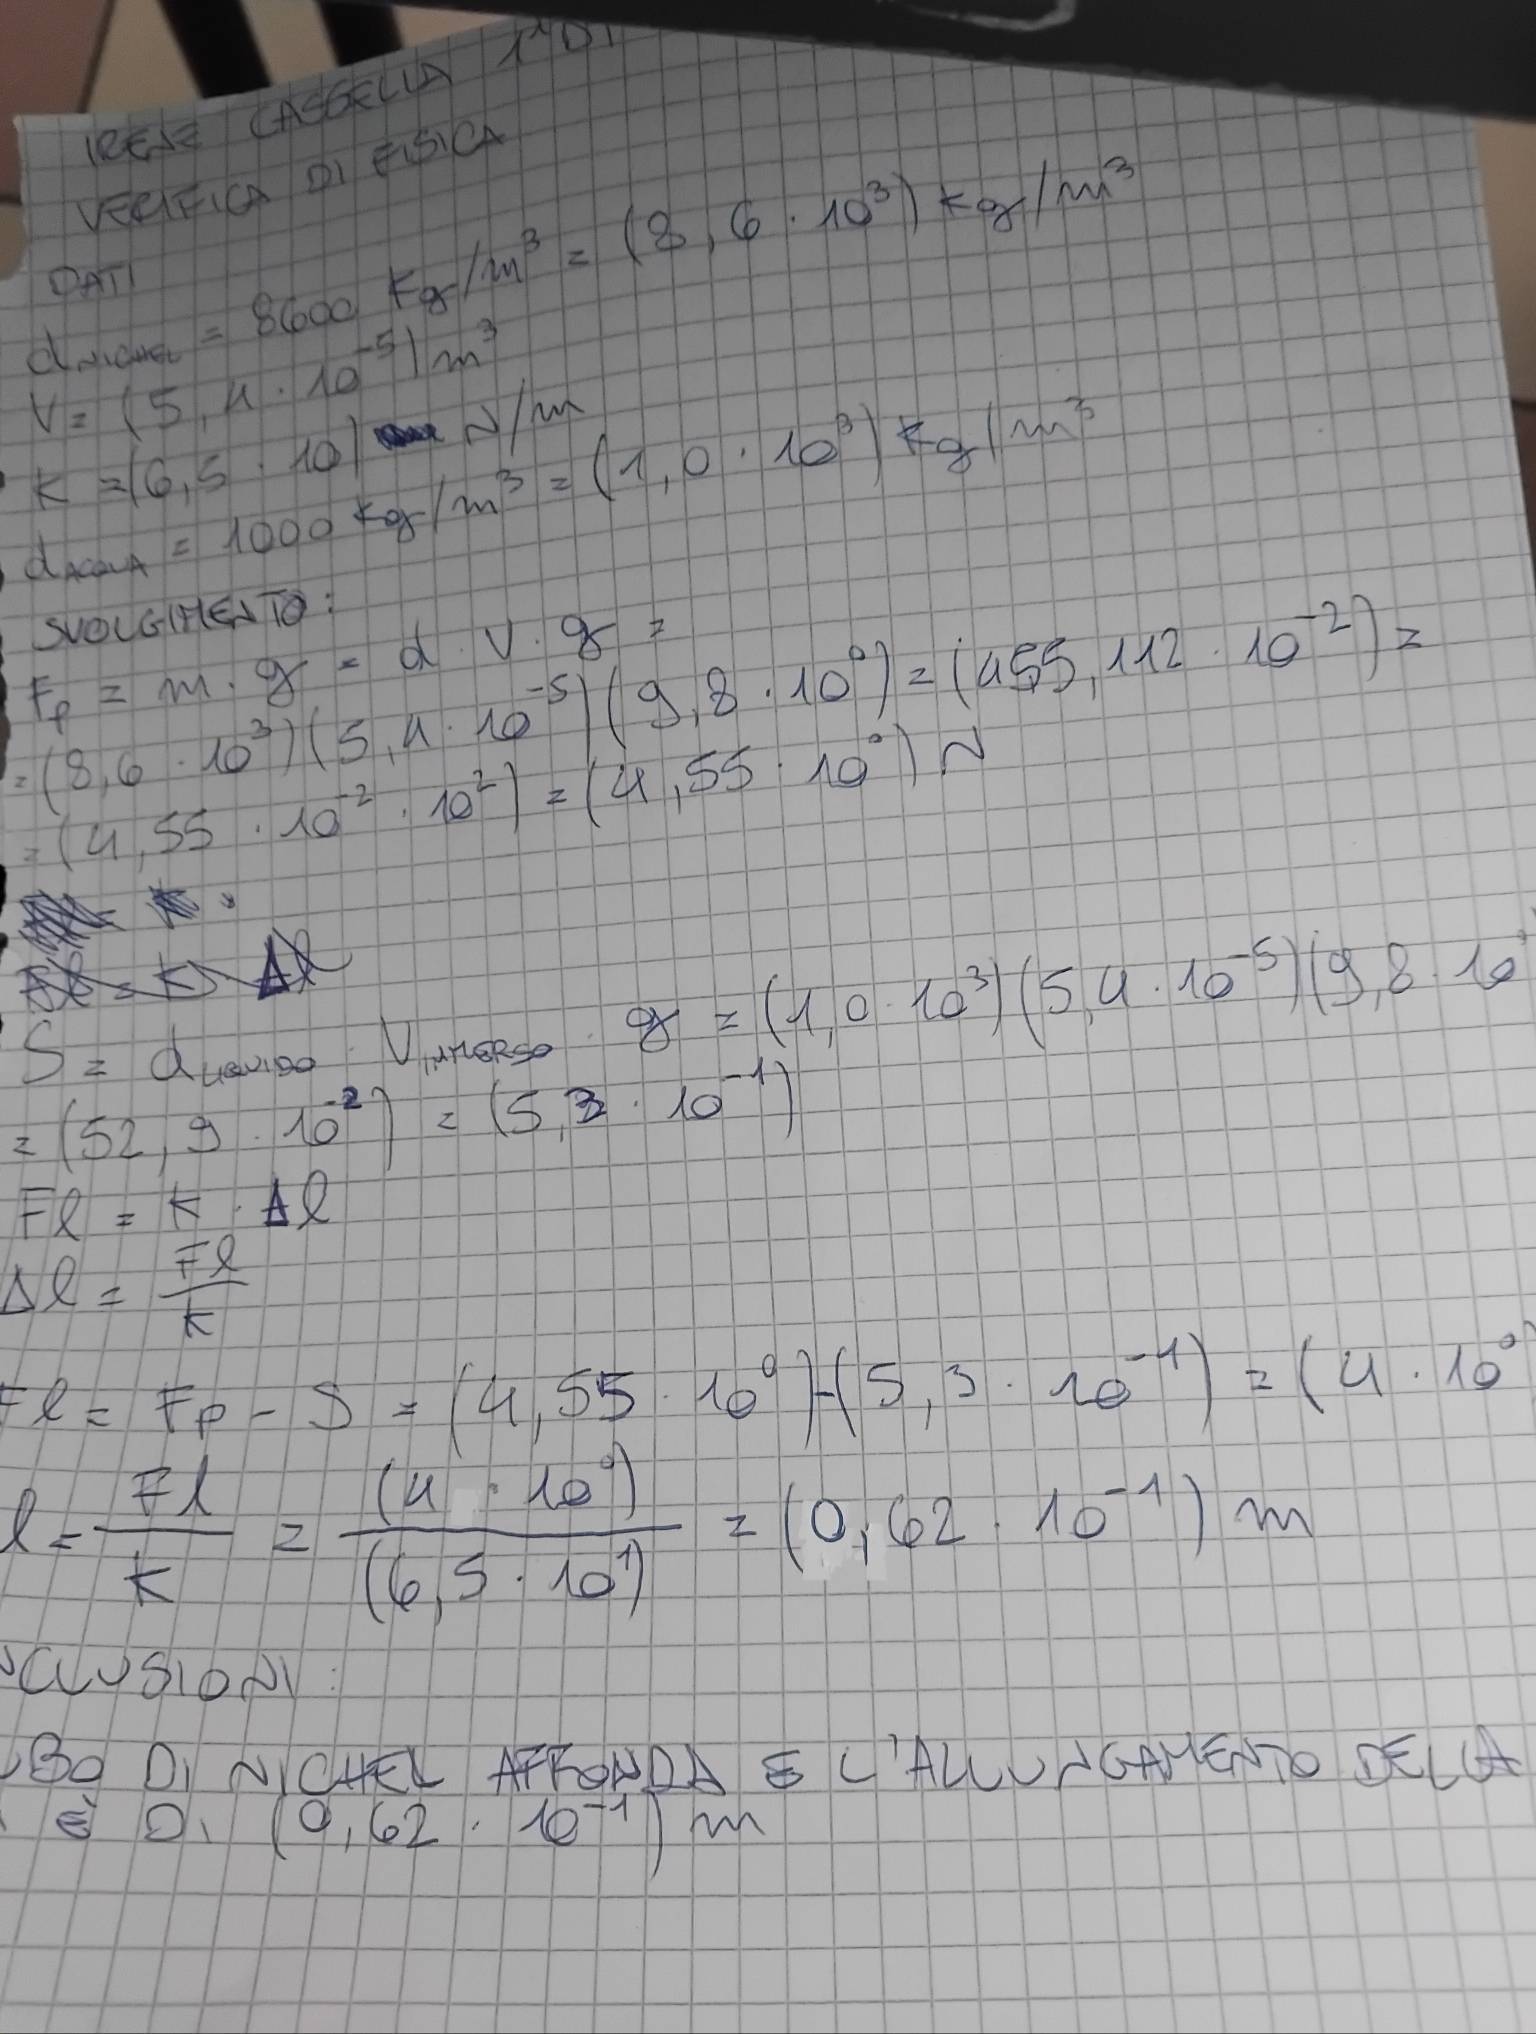 IRENE CASSELLA 1^D1
VERIFICA DI FISICA
DATI
dNICHEL = 8600 Kg/m³ = (8,6 · 10³) kg/m³
V = (5,4 · 10⁻⁵) m³
K = (6,5 · 10) N/m
dACQUA = 1000 kg/m³ = (1,0 · 10³) kg/m³
SVOLGIMENTO:
Fp = m · g = d · V · g =
= (8,6 · 10³)(5,4 · 10⁻⁵)(9,8 · 10⁰) = (455,112 · 10⁻²) =
= (4,55 · 10⁻² · 10²) = (4,55 · 10⁰) N
S = dLIQUIDO · VIMMERSO · g = (1,0 · 10³)(5,4 · 10⁻⁵)(9,8 · 10⁰
= (52,9 · 10⁻²) = (5,3 · 10⁻¹)
Fl = K · Δl
Δl = Fl / K
Fl = Fp - S = (4,55 · 10⁰)-(5,3 · 10⁻¹) = (4 · 10⁰)
l = Fl / K = (4 · 10⁰) / (6,5 · 10¹) = (0,62 · 10⁻¹) m
NCLUSIONI:
UBO DI NICHEL AFFONDA E L'ALLUNGAMENTO DELLA
È DI (0,62 · 10⁻¹) m